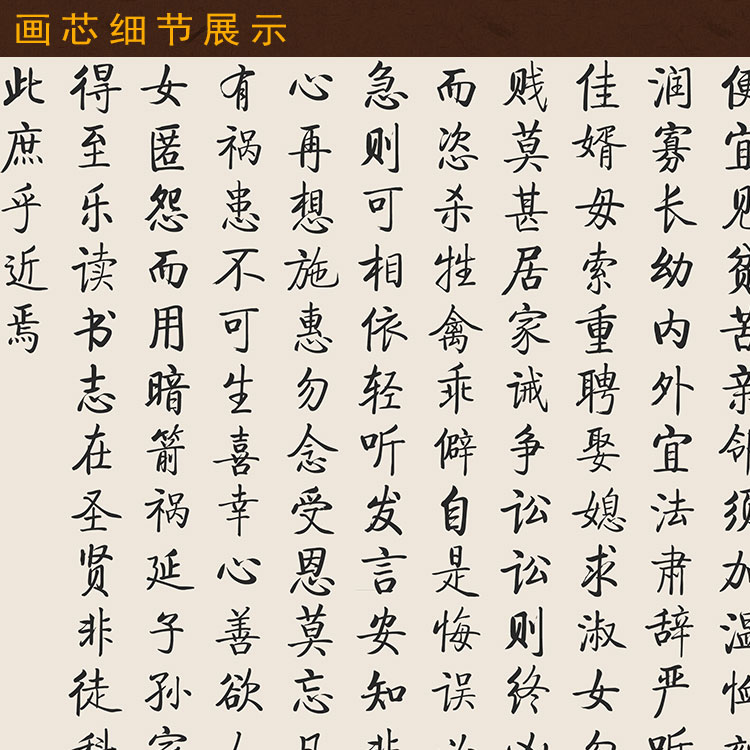 画芯细节展示
便宜见贫苦亲邻须加温恤
润寡长幼内外宜法肃辞严听
佳婿毋索重聘娶媳求淑女勿
贱莫甚居家诫争讼讼则终凶
而恣杀牲禽乖僻自是悔误必
急则可相依轻听发言安知非
心再想施惠勿念受恩莫忘凡
有祸患不可生喜幸心善欲人
女匿怨而用暗箭祸延子孙家
得至乐读书志在圣贤非徒科
此庶乎近焉